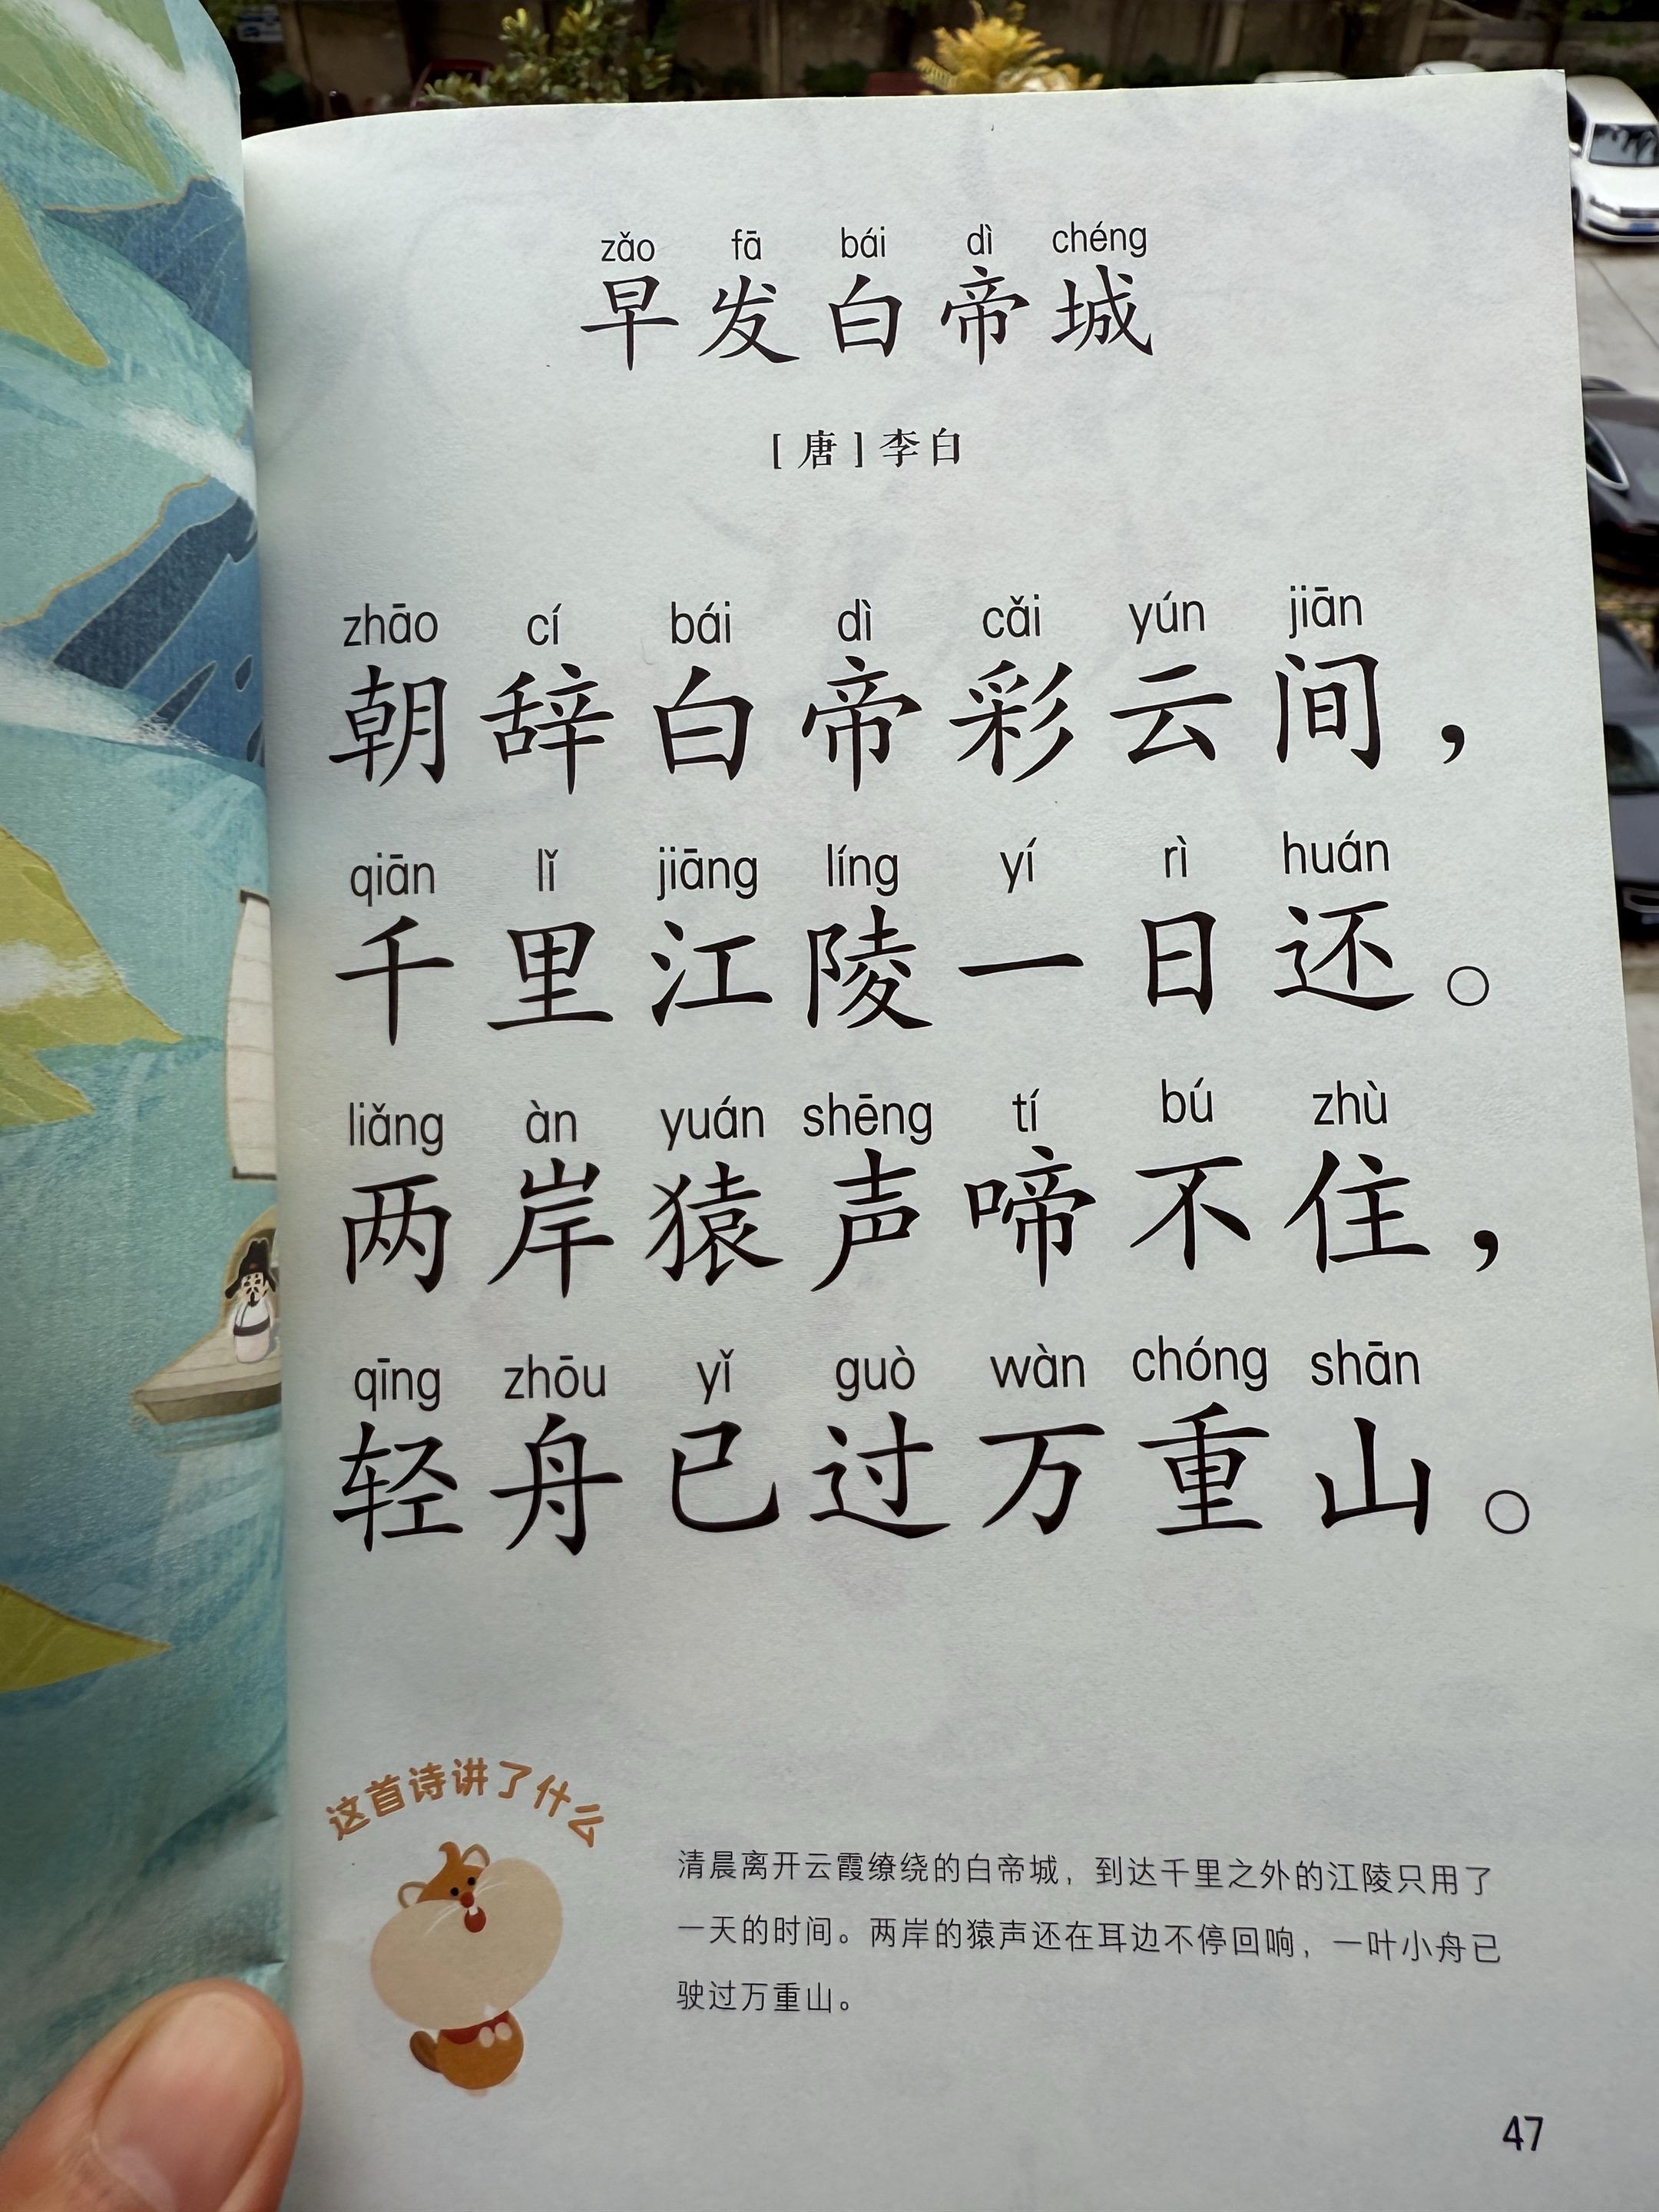 zǎo fā bái dì chéng
早发白帝城
[唐]李白
zhāo cí bái dì cǎi yún jiān
朝辞白帝彩云间，
qiān lǐ jiāng líng yí rì huán
千里江陵一日还。
liǎng àn yuán shēng tí bú zhù
两岸猿声啼不住，
qīng zhōu yǐ guò wàn chóng shān
轻舟已过万重山。
这首诗讲了什么
清晨离开云霞缭绕的白帝城，到达千里之外的江陵只用了
一天的时间。两岸的猿声还在耳边不停回响，一叶小舟已
驶过万重山。
47